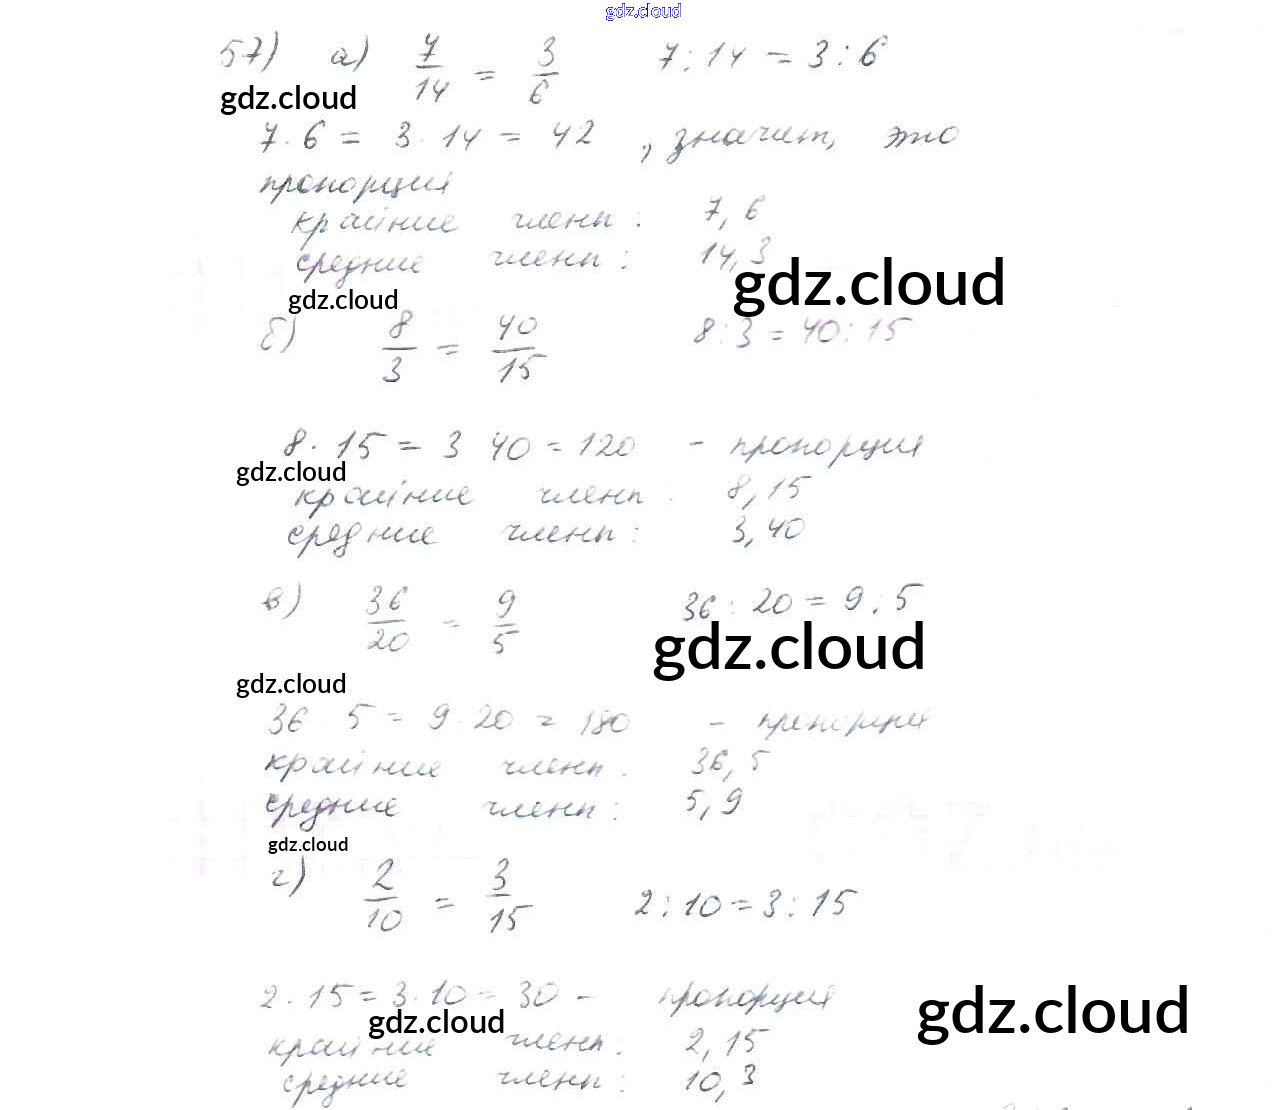 gdz.cloud
57) а) 7/14 = 3/6 7:14 = 3:6
gdz.cloud
7·6 = 3·14 = 42, значит, это
пропорция
крайние члены: 7, 6
средние члены: 14, 3
gdz.cloud
gdz.cloud
б) 8/3 = 40/15 8:3 = 40:15
8·15 = 3 40 = 120 - пропорция
gdz.cloud
крайние члены: 8, 15
средние члены: 3, 40
в) 36/20 = 9/5 36:20 = 9:5
gdz.cloud
gdz.cloud
36 · 5 = 9·20 = 180 - пропорция
крайние члены: 36, 5
средние члены: 5, 9
gdz.cloud
г) 2/10 = 3/15 2:10 = 3:15
2·15 = 3·10 = 30 - пропорция
gdz.cloud
gdz.cloud
крайние члены: 2, 15
средние члены: 10, 3